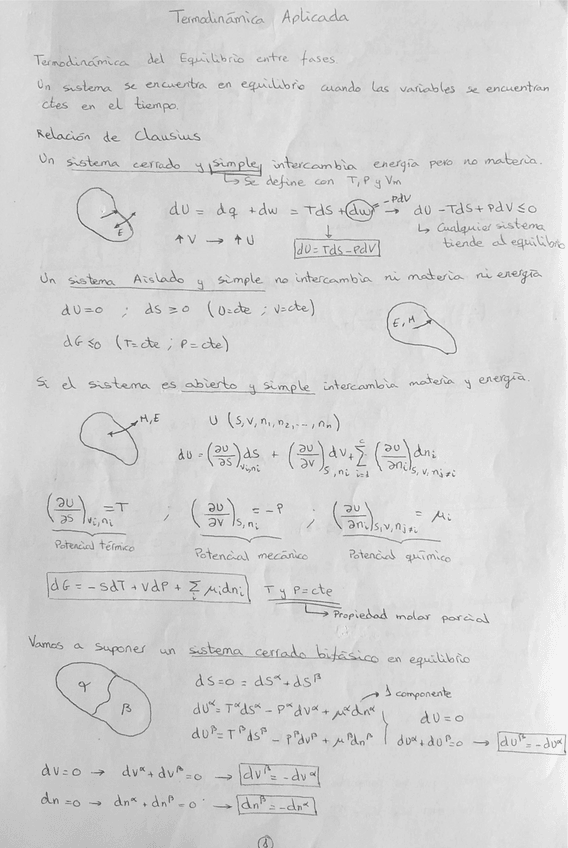 Termodinámica Aplicada
Termodinámica del Equilibrio entre fases.
Un sistema se encuentra en equilibrio cuando las variables se encuentran
ctes en el tiempo.
Relación de Clausius
Un sistema cerrado y simple, intercambia energía pero no materia.
↳ Se define con T, P y Vm
E
dU = dq + dw = TdS + dw → -PdV → dU - TdS + PdV ≤ 0
↑V → ↑U
↓
dU = TdS - PdV
↳ Cualquier sistema
tiende al equilibrio
Un sistema Aislado y simple no intercambia ni materia ni energía
dU = 0 ; dS ≥ 0 (U = cte ; V = cte)
dG ≤ 0 (T = cte ; P = cte)
E, M
Si el sistema es abierto y simple intercambia materia y energía.
M, E
U (S, V, n₁, n₂, ..., nₙ)
dU = (∂U/∂S)_{V, ni} dS + (∂U/∂V)_{S, ni} dV + Σ_{i=1}^{c} (∂U/∂ni)_{S, V, nj≠i} dni
(∂U/∂S)_{Vi, ni} = T ; (∂U/∂V)_{S, ni} = -P ; (∂U/∂ni)_{S, V, nj≠i} = μi
Potencial térmico Potencial mecánico Potencial químico
dG = -SdT + VdP + Σ_i μi dni T y P = cte
↳ Propiedad molar parcial
Vamos a suponer un sistema cerrado bifásico en equilibrio
α
β
dS = 0 = dS^α + dS^β
→ 1 componente
dU^α = T^α dS^α - P^α dV^α + μ^α dn^α
dU^β = T^β dS^β - P^β dV^β + μ^β dn^β
dU = 0
dU^α + dU^β = 0 → dU^β = -dU^α
dV = 0 → dV^α + dV^β = 0 → dV^β = -dV^α
dn = 0 → dn^α + dn^β = 0 → dn^β = -dn^α
1